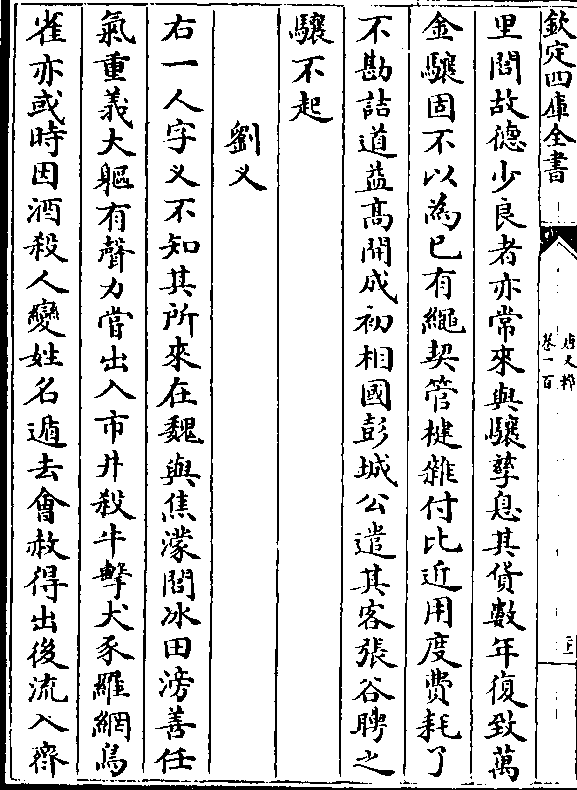 欽定四庫全書
唐文粹
卷一百
里閭故德少良者亦常來與驤孳息其貨數年復致萬
金驤固不以為已有繩契管楗雜付比近用度費耗了
不勘詰道益高開成初相國彭城公遣其客張谷聘之
驤不起
劉义
右一人字义不知其所來在魏與焦濛閭冰田滂善任
氣重義大軀有聲力嘗出入市井殺牛擊犬豕羅網鳥
雀亦或時因酒殺人變姓名遁去會赦得出後流入齊